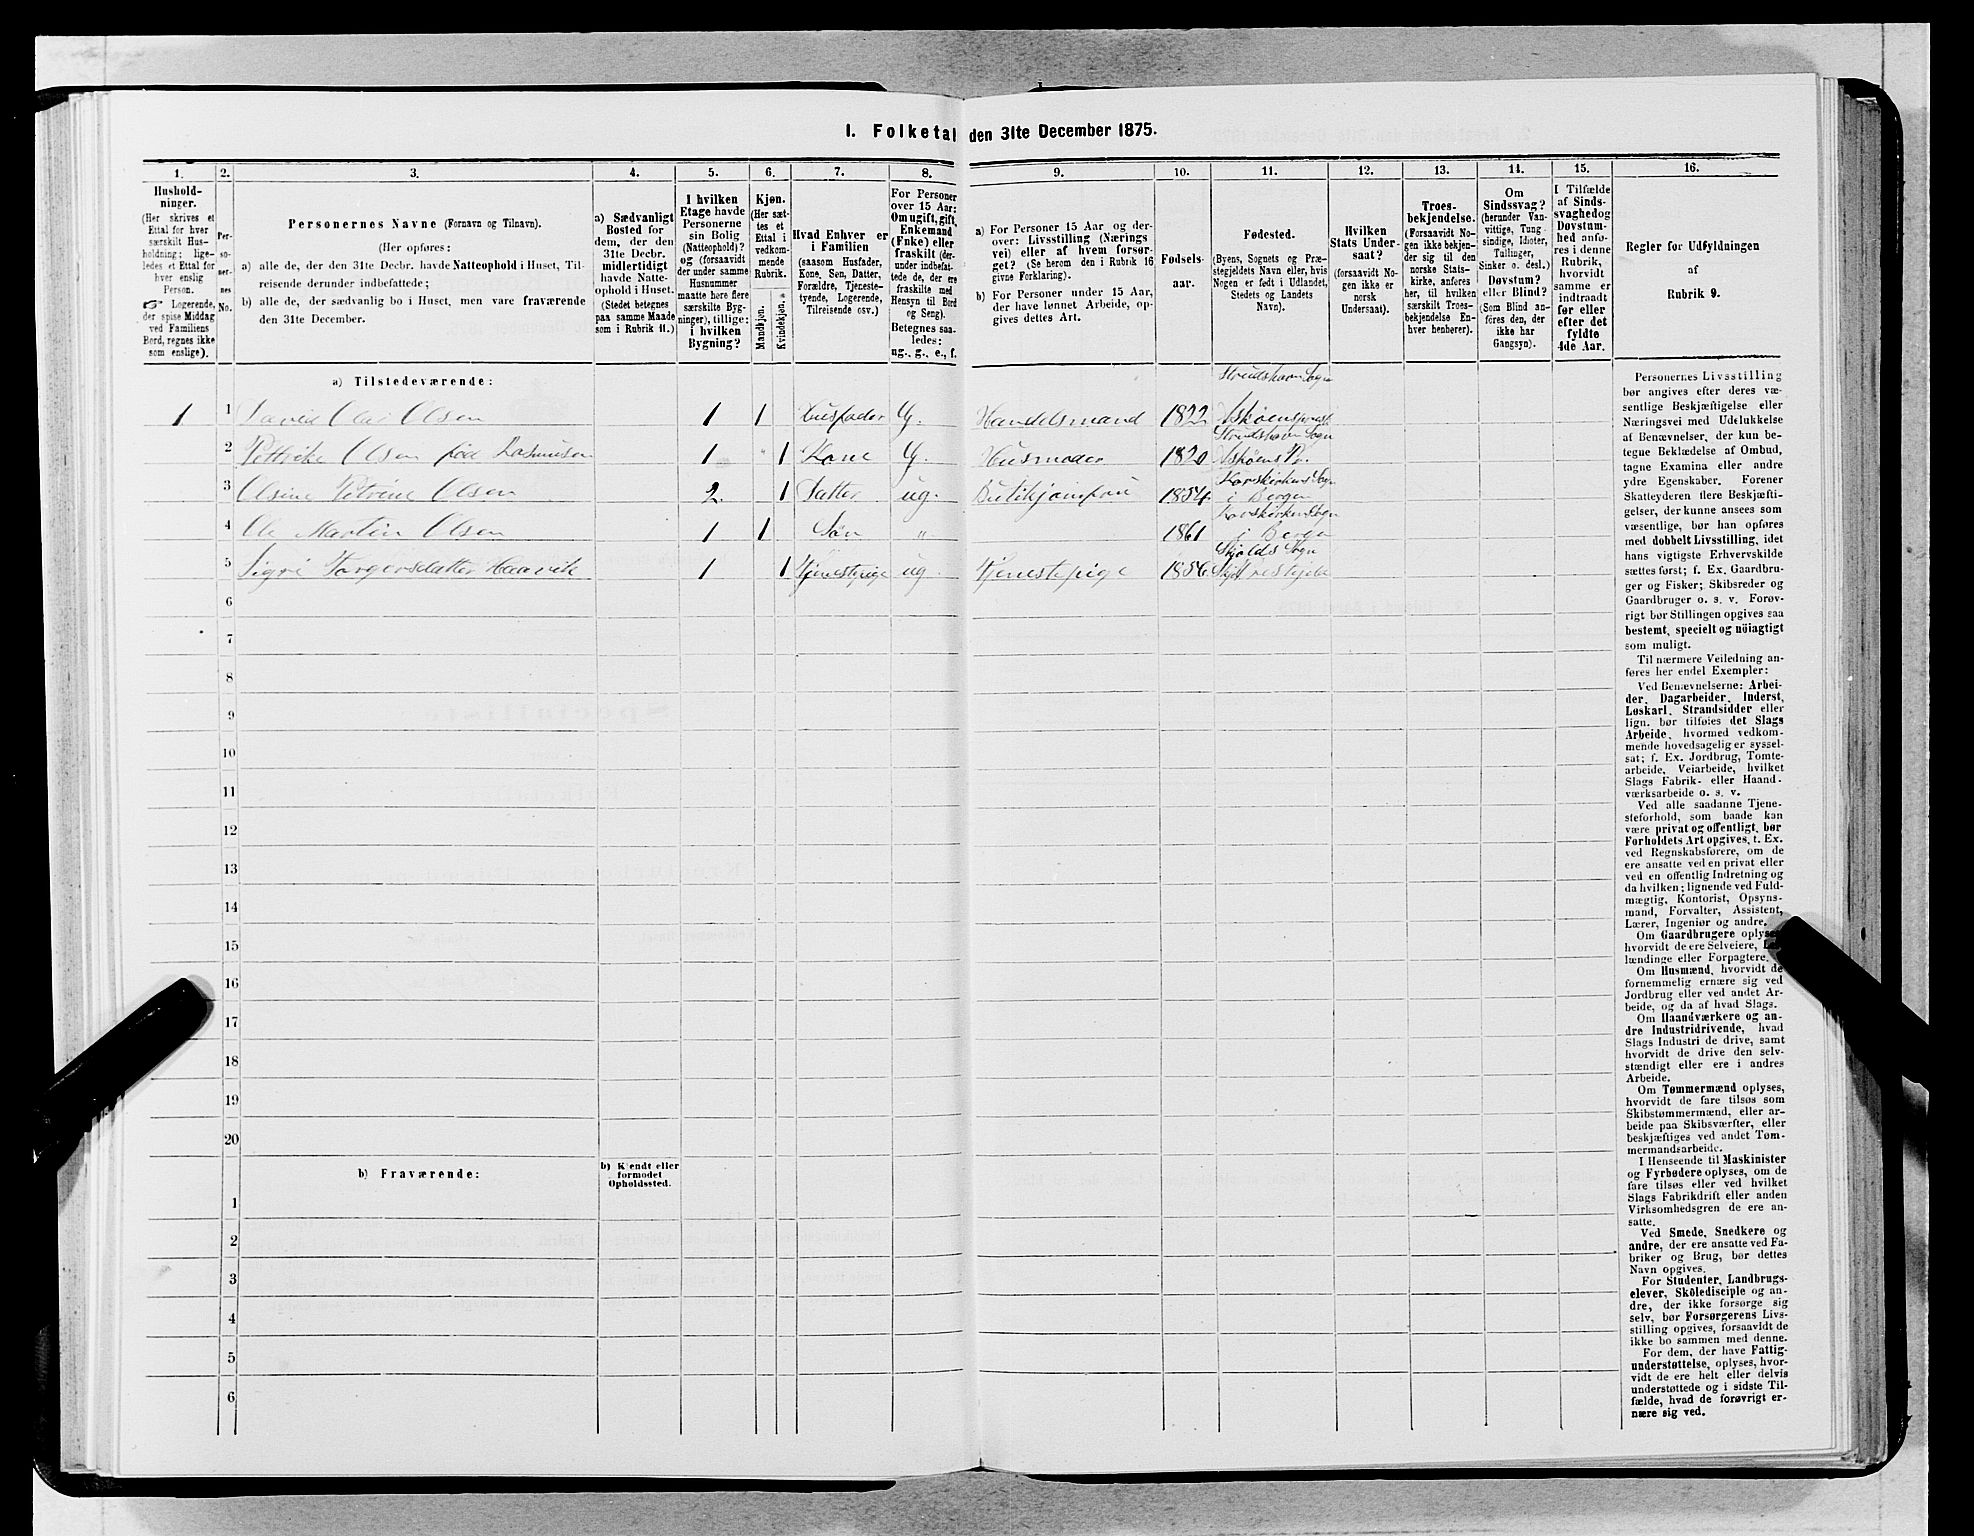 I. Folketal den 31te December 1875.
1.
Hushold-
ninger.
(Her skrives et
Ettal for hver
særskilt Hus-
holdning; lige-
ledes et Ettal for
hver enslig
Person.
☞ Logerende,
der spise Middag
ved Familiens
Bord, regnes ikke
som enslige).
2.
Per-
so-
ner-
nes
No.
3.
Personernes Navne (Fornavn og Tilnavn).
(Her opføres:
a) alle de, der den 31te Decbr. havde Natteophold i Huset, Til-
reisende derunder indbefattede;
b) alle de, der sædvanlig bo i Huset, men vare fraværende
den 31te December.
4.
a) Sædvanligt
Bosted for
dem, der den
31te Decbr.
midlertidigt
havde Natte-
ophold i Huset.
(Stedet betegnes
paa samme Maade
som i Rubrik 11.)
5.
I hvilken
Etage havde
Personerne
sin Bolig
(Natteophold)?
og (forsaavidt
der under samme
Husnummer
maatte høre flere
særskilte Byg-
ninger), tillige:
i hvilken
Bygning?
6.
Kjøn.
(Her sæt-
tes et
Ettal i
vedkom-
mende
Rubrik.
Mandkjøn.
Kvindekjøn.
7.
Hvad Enhver er
i Familien
(saasom Husfader,
Kone, Søn, Datter,
Forældre, Tjeneste-
tyende, Logerende,
Tilreisende osv.)
8.
For Personer
over 15 Aar:
Om ugift, gift,
Enkemand
(Enke) eller
fraskilt (der-
under indbefat-
tede de, der ere
fraskilte med
Hensyn til Bord
og Seng).
Betegnes saa-
ledes:
ug., g., e., f.
9.
a) For Personer 15 Aar og der-
over: Livsstilling (Nærings
vei) eller af hvem forsør-
get? (Se herom den i Rubrik 16
givne Forklaring).
b) For Personer under 15 Aar,
der have lønnet Arbeide, op-
gives dettes Art.
10.
Fødsels-
aar.
11.
Fødested.
(Byens, Sognets og Præ-
stegjeldets Navn eller, hvis
Nogen er født i Udlandet,
Stedets og Landets
Navn).
12.
Hvilken
Stats Under-
saat?
(forsaavidt No-
gen ikke er
norsk
Undersaat).
13.
Troes-
bekjendelse.
(Forsaavidt No-
gen ikke bekjen-
der sig til den
norske Stats-
kirke, anføres
her, til hvilken
særskilt Troes-
bekjendelse En-
hver henhører).
14.
Om
Sindssvag?
(herunder Van-
vittige, Tung-
sindige, Idioter,
Tullinger,
Sinker o. desl.)
Døvstum?
eller Blind?
(Som Blind an-
føres den, der
ikke har
Gangsyn).
15.
I Tilfælde
af Sinds-
svaghed og
Døvstum-
hed anfø-
res i denne
Rubrik,
hvorvidt
samme er
indtraadt
før eller
efter det
fyldte
4de Aar.
16.
Regler for Udfyldningen
af
Rubrik 9.
a) Tilstedeværende:
Strudshavn Sogn
1 1 David Olai Olsen 1 1 Husfader G. Handelsmand 1822 Askøens præst.
Strudshavn Sogn
2 Olsen fød Rasmusen 1 1 Kone G. Husmoder 1820 Askøens Pr.
Korskirkens Sogn
3 Olsine Petrine Olsen 2. 1 Datter ug. Butikjomfru 1854. i Bergen
Korskirkens Sogn
4 Ole Martin Olsen 1 1 Søn „ 1861 i Bergen
Skjolds Sogn
5 Sigri Torgersdatter Haavik 1 1 Tjenestepige ug. Tjenestepige 1856
6
7
8
9
10
11
12
13
14
15
16
17
18
19
20
b) Fraværende:
b) Kjendt eller
formodet
Opholdssted.
1
2
3
4
5
6
Personernes Livsstilling
bør angives efter deres væ-
sentlige Beskjæftigelse eller
Næringsvei med Udelukkelse
af Benævnelser, der kun be-
tegne Beklædelse af Ombud,
tagne Examina eller andre
ydre Egenskaber. Forener
Skatteyderen flere Beskjæfti-
gelser, der kunne ansees som
væsentlige, bør han opføres
med dobbelt Livsstilling, idet
hans vigtigste Erhvervskilde
sættes først; f. Ex. Gaardbru-
ger og Fisker; Skibsreder og
Gaardbruger o. s. v. Forøv-
rigt bør Stillingen opgives saa
bestemt, specielt og nöiagtigt
som muligt.
Til nærmere Veiledning an-
føres her endel Exempler:
Ved Benævnelserne: Arbei-
der, Dagarbeider, Inderst,
Løskarl, Strandsidder eller
lign. bør tilføies det Slags
Arbeide, hvormed vedkom-
mende hovedsagelig er syssel-
sat; f. Ex. Jordbrug, Tomte-
arbeide, Veiarbeide, hvilket
Slags Fabrik- eller Haand-
værksarbeide o. s. v.
Ved alle saadanne Tjene-
steforhold, som baade kan
være privat og offentligt, bør
Forholdets Art opgives, t. Ex.
ved Regnskabsførere, om de
ere ansatte ved en privat eller
ved en offentlig Indretning og
da hvilken; lignende ved Fuld-
mægtig, Kontorist, Opsyns-
mand, Forvalter, Assistent,
Lærer, Ingeniør og andre.
Om Gaardbrugere oplyses,
hvorvidt de ere Selveiere, Lei-
lændinge eller Forpagtere.
Om Husmænd, hvorvidt de
fornemmelig ernære sig ved
Jordbrug eller ved andet Ar-
beide, og da af hvad Slags.
Om Haandværkere og an-
dre Industridrivende, hvad
Slags Industri de drive, samt
hvorvidt de drive den selv-
stændigt eller ere i andres
Arbeide.
Om Tømmermænd oplyses,
hvorvidt de fare tilsøs som
Skibstømmermænd, eller ar-
beide paa Skibsværfter, eller
beskjæftiges ved andet Tøm-
mermandsarbeide.
I Henseende til Maskinister
og Fyrbødere oplyses, om de
fare tilsøs eller ved hvilket
Slags Fabrikdrift eller anden
Virksomhedsgren de ere an-
satte.
Ved Smede, Snedkere og
andre, der ere ansatte ved Fa-
briker og Brug, bør dettes
Navn opgives.
For Studenter, Landbrugs-
elever, Skôledisciple og an-
dre, der ikke forsørge sig
selv, bør Forsørgerens Livs-
stilling opgives, forsaavidt de
ikke bo sammen med denne.
For dem, der have Fattig-
understøttelse, oplyses, hvor-
vidt de ere helt eller delvis
understøttede og i sidste Til-
fælde, hvad de forøvrigt er-
nære sig ved.